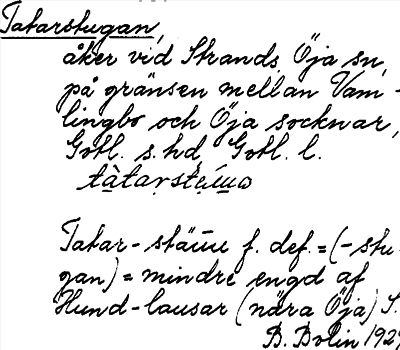 Tatarstugan,
åker vid Strands, Öja sn,
på gränsen mellan Vam-
lingbo och Öja socknar,
Gotl. s. hd, Gotl. l.
Tatar- f. def. = (-stu-
gan) = mindre engd af
Hund-lausar (nära Öja) S.
B. Bolin 1929